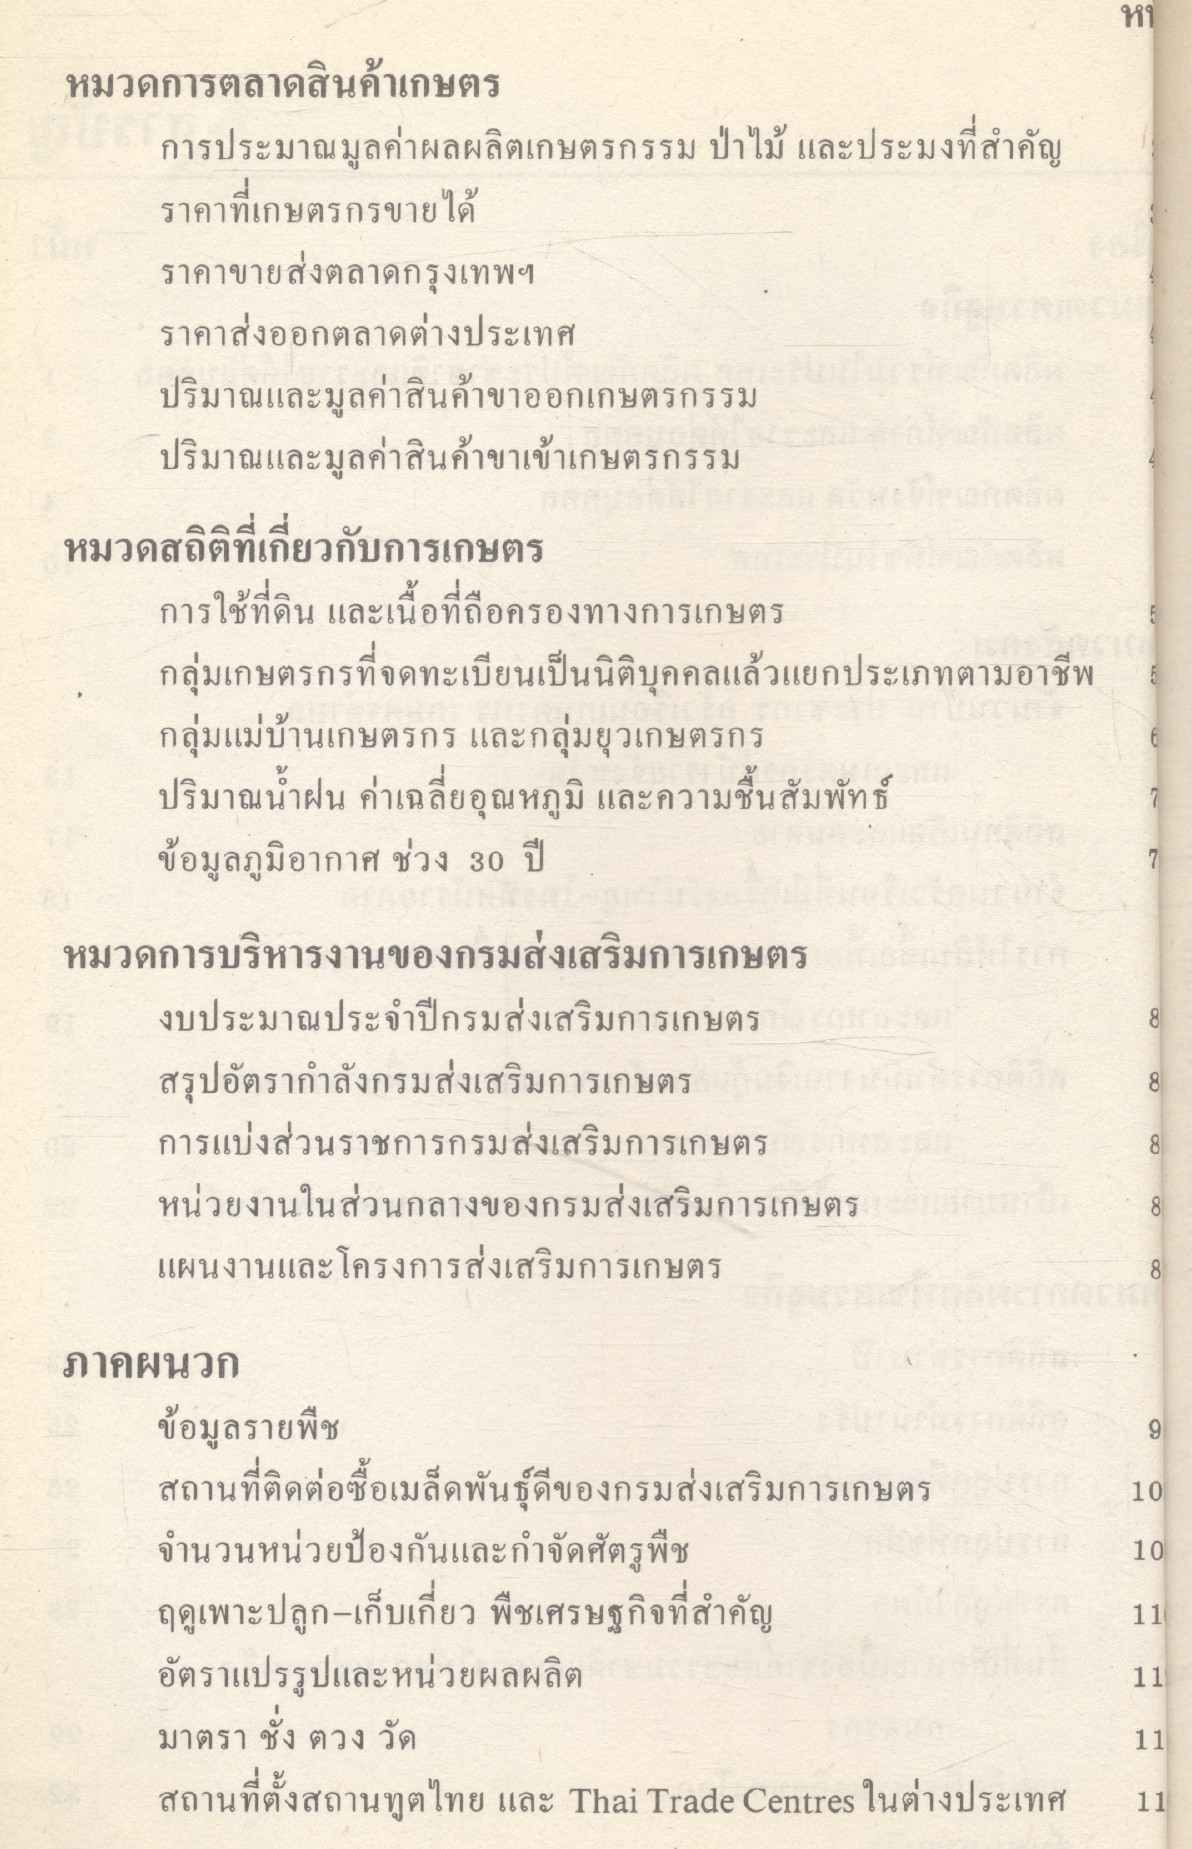 หมวดการตลาดสินค้าเกษตร
การประมาณมูลค่าผลผลิตเกษตรกรรม ป่าไม้ และประมงที่สำคัญ
ราคาที่เกษตรกรขายได้
ราคาขายส่งตลาดกรุงเทพฯ
ราคาส่งออกตลาดต่างประเทศ
ปริมาณและมูลค่าสินค้าขาออกเกษตรกรรม
ปริมาณและมูลค่าสินค้าขาเข้าเกษตรกรรม
หมวดสถิติที่เกี่ยวกับการเกษตร
การใช้ที่ดิน และเนื้อที่ถือครองทางการเกษตร 5
กลุ่มเกษตรกรที่จดทะเบียนเป็นนิติบุคคลแล้วแยกประเภทตามอาชีพ 5
กลุ่มแม่บ้านเกษตรกร และกลุ่มยุวเกษตรกร 6
ปริมาณน้ำฝน ค่าเฉลี่ยอุณหภูมิ และความชื้นสัมพัทธ์ 7
ข้อมูลภูมิอากาศ ช่วง 30 ปี 7
หมวดการบริหารงานของกรมส่งเสริมการเกษตร
งบประมาณประจำปีกรมส่งเสริมการเกษตร 8
สรุปอัตรากำลังกรมส่งเสริมการเกษตร 8
การแบ่งส่วนราชการกรมส่งเสริมการเกษตร 8
หน่วยงานในส่วนกลางของกรมส่งเสริมการเกษตร 8
แผนงานและโครงการส่งเสริมการเกษตร 8
ภาคผนวก
ข้อมูลรายพืช 9
สถานที่ติดต่อซื้อเมล็ดพันธุ์ดีของกรมส่งเสริมการเกษตร 10
จำนวนหน่วยป้องกันและกำจัดศัตรูพืช 10
ฤดูเพาะปลูก–เก็บเกี่ยว พืชเศรษฐกิจที่สำคัญ 110
อัตราแปรรูปและหน่วยผลผลิต 11
มาตรา ชั่ง ตวง วัด 11
สถานที่ตั้งสถานทูตไทย และ Thai Trade Centres ในต่างประเทศ 11